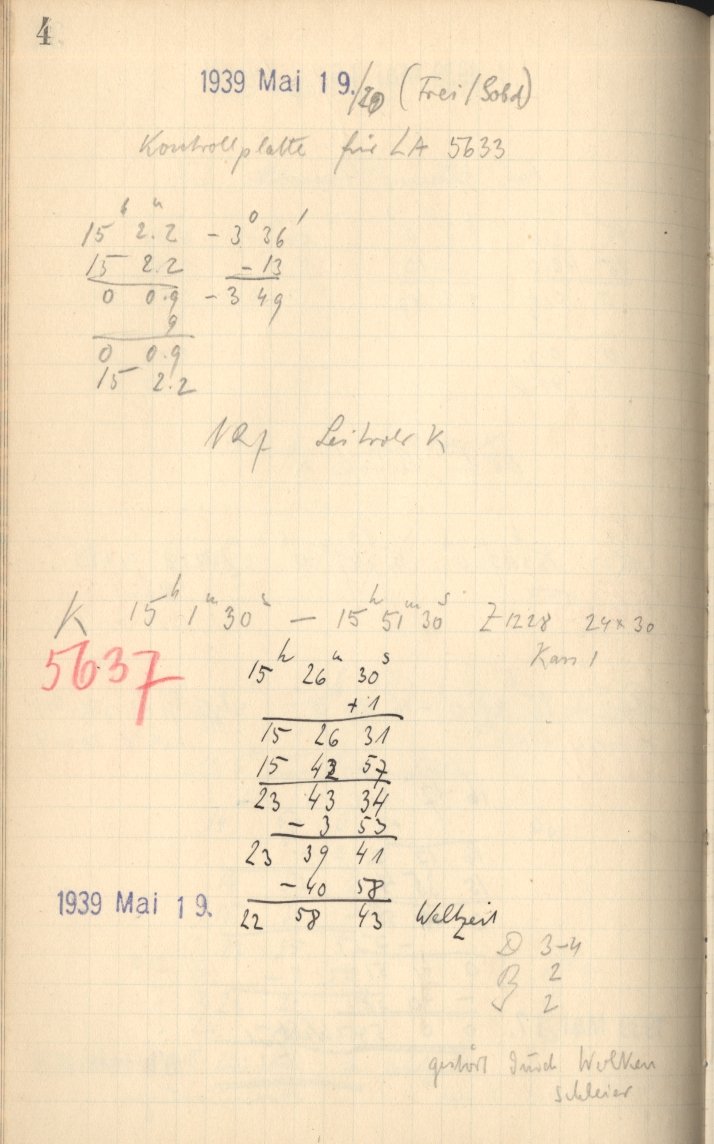 4
1939 Mai 19./20 (Frei/Sobd)
Kontrollplatte für LA 5633
15ʰ 2.2 - 3° 36'
15 2.2 - 13
0 0.9 - 3 49
9
0 0.9
15 2.2
K 15ʰ 1ᵐ 30ˢ — 15ʰ 51ᵐ 30ˢ Z 1228 24×30
5637 15ʰ 26ᵐ 30ˢ Kass 1
+1
15 26 31
15 42 57
23 43 34
- 3 53
23 39 41
- 40 58
1939 Mai 19. 22 58 43 Weltzeit
D 3-4
B 2
2
gestört durch Wolken
schleier